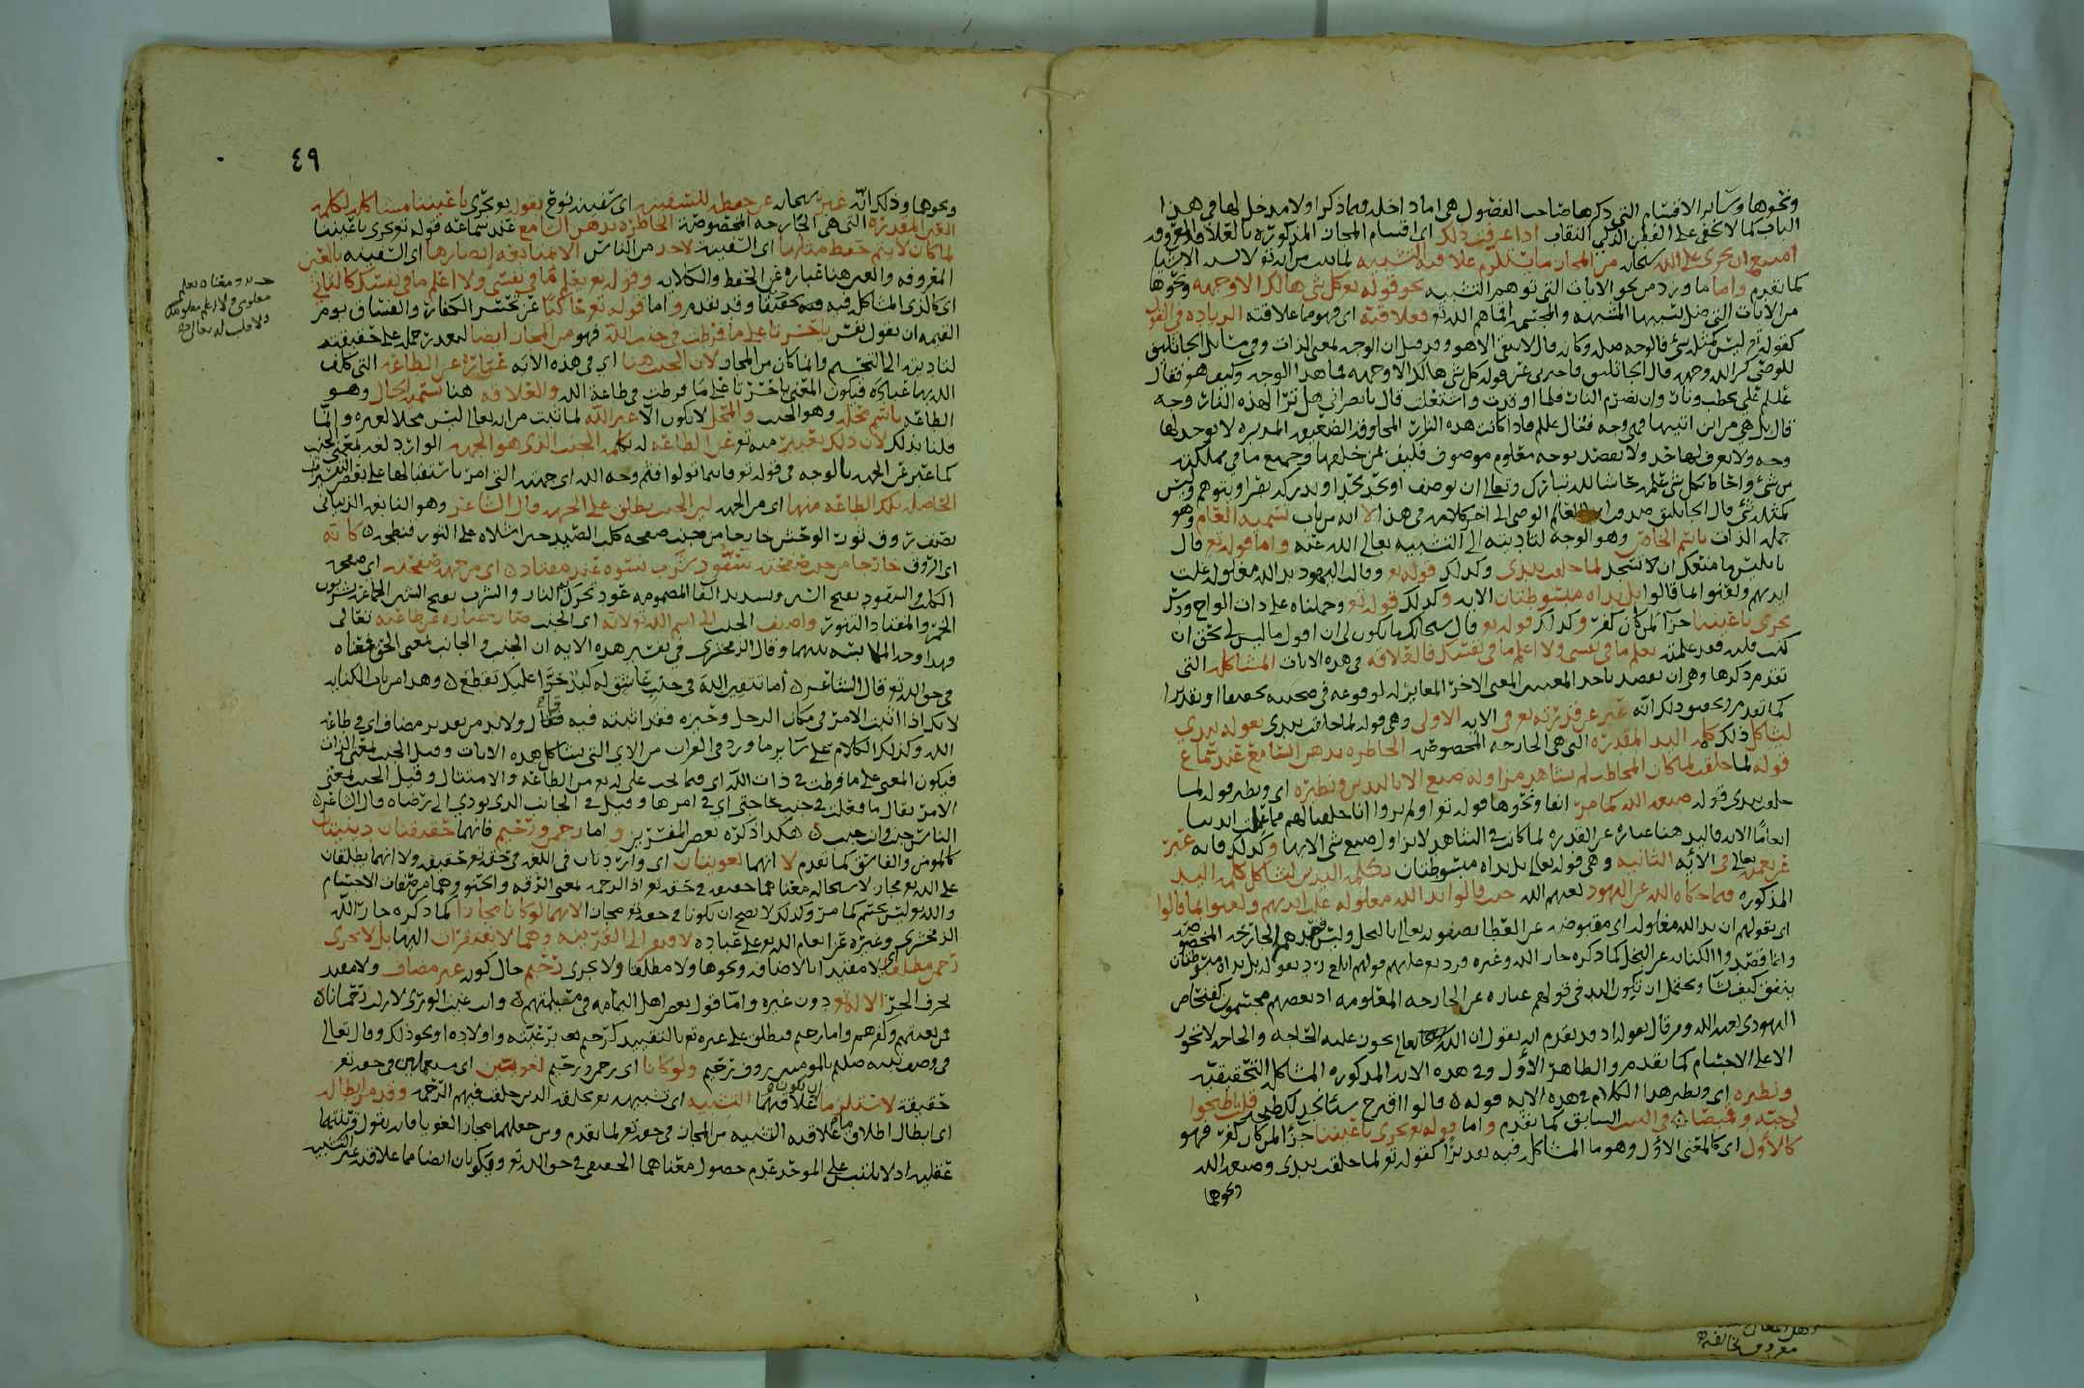 ونحوها وسائر الاقسام التي ذكرها صاحب الفصول هي اما داخله فيما ذكر او لا مدخل لها في هذا
الباب كما لا يخفى على الفطن الذكي النقاب اذا عرفت ذلك اي اقسام المجاز المذكوره بالعلاقه
امتنع ان يجرى على الله سبحانه من المجاز ما يستلزم علاقته التشبيه لما ثبت من انه تع لا يشبه الاشيا
كما تقدم واما ما ورد من نحو الايات التي توهم التشبيه نحو قوله تع كل شي هالك الا وجهه ونحوها
من الايات التي ضل بسببها المشبهه والمجسمه اقماهم الله تع فعلاقته اي فهو ما علاقته الزياده في
كقوله تع ليس كمثله شي فالوجه صله وكانه قال لا يبقى الا هو وقد قيل ان الوجه بمعنى الذات وفي مسائل الجاثليق
للوصي كرم الله وجهه قال الجاثليق فاخبرني عن قوله كل شي هالك الا وجهه فما هذا الوجه وكيف هو فقال
عليلم علي بحطب ونار وان يضرم النار فلما اوقدت واشتعلت قال يا نصراني هل ترا لهذه النار وجه
قال بل هي من اين اتيتها فهي وجه فقال عليلم فاذا كانت هذه النار المخلوقه الضعيفه المدبره لا يوجد لها
وجه ولا يعرف لها حد ولا يقصد بوجه معلوم موصوف فكيف بمن خلقها وجميع ما في مملكته
من شي واحاط بكل شي علمه حاشا لله تبارك وتعالى ان يوصف او يحد بحد او يدرك ببصر او بتوهم وليس
كمثله شي قال الجاثليق صدقت ايها العالم الوصي الى اخر كلامه في هذا انه من باب تسميه العام وهو
جمله الذات باسم الخاص وهو الوجه لتاديته الى التشبيه تعالى الله عنه واما قوله تع قال
يا ابليس ما منعك ان لا تسجد لما خلقت بيدي وكذلك قوله تع وقالت اليهود يد الله مغلوله غلت
ايديهم ولعنوا بما قالوا بل يداه مبسوطتان الايه وكذلك قوله تع وحملناه على ذات الواح ودسر
تجرى باعيننا جزاء لمن كان كفر وكذلك قوله تع قال سبحانك ما يكون لي ان اقول ما ليس لي بحق ان
كنت قلته فقد علمته تعلم ما في نفسي ولا اعلم ما في نفسك فالعلاقه في هذه الايات المشاكله التي
تقدم ذكرها وهي ان يقصد باحد المعنيين المعنى الاخر المغاير له لوقوعه في صحبته تحقيقا او تقديرا
كما تقدم وتحقيق ذلك انه عبر عن قدرته تع في الايه الاولى وهي قوله لما خلقت بيدي بقوله بيدي
ليشاكل ذلك كلمه اليد المقدره التي هي الجارحه المخصوصه الخاطره بذهن السامع عند سماع
قوله لما خلقت لما كان المخاطب لم يشاهد مزاولة صنع الا باليدين ونظيره اي ونظير قوله لما
خلقت بيدي قوله صبغه الله كما مر انفا ونحوها قوله تع اولم يروا انا خلقنا لهم مما عملت ايدينا
انعاما الايه فاليد هنا عبارة عن القدره لما كانت في الشاهد لا يزاول صنع شي الا بها وكذلك فانه عبر
عن نعمته تعالى في الايه الثانيه وهي قوله تعالى بل يداه مبسوطتان بكلمه اليدين ليشاكل كلمه اليد
المذكوره فيما حكاه الله عن اليهود لعنهم الله حيث قالوا يد الله مغلوله غلت ايديهم ولعنوا بما قالوا
اي بقولهم ان يد الله مغلوله اي مقبوضه عن العطا يصفونه تعالى بالبخل وليس قصدهم الجارحه المخصوصه
وانما قصدوا الكنايه عن البخل كما ذكره جار الله وغيره ورد تع عليهم قولهم ابلغ رد بقوله بل يداه مبسوطتان
ينفق كيف يشا ويحتمل ان تكون اليد في قولهم عباره عن الجارحه المعلومه اذ بعضهم مجسمون كفنحاص
اليهودي لعنه الله ومن قال بقوله اذ قد تقدم انه يقول ان الله تعالى يجوز عليه الحاجه والحاجه لا تجوز
الا على الاجسام كما تقدم والظاهر الاول وفي هذه الايه المذكوره المشاكله التحقيقيه
ونظيره اي ونظير هذا الكلام في هذه الايه قوله قالوا اقترح شيئا نجد لك طبخه قلت اطبخوا
لي جبة وقميصا في البيت السابق كما تقدم واما قوله تع تجرى باعيننا جزاء لمن كان كفر فهو
كالاول اي كالمعنى الاول وهو ما المشاكله فيه تقديرا كقوله تع لما خلقت بيدي وصبغه الله
ونحوهما
٤٩
ونحوهما وذلك انه عبر سبحانه عن حفظه للسفينه اي سفينه نوح بقوله تع تجرى باعيننا مشاكله لكلمه
العين المقدره التي هي الجارحه المخصوصه الخاطره بذهن السامع عند سماعه قوله تع تجرى باعيننا
لما كان لا يتم حفظ مثلها اي السفينه لاحد من الناس الا بمتابعه ابصارها اي السفينه بالعين
المعروفه والعين هنا عبارة عن الحفظ والكلايه وقوله تع تعلم ما في نفسي ولا اعلم ما في نفسك كالثاني
اي كالذي المشاكله فيه تحقيقا وقد تقدم واما قوله تع حاكيا عن تحسر الكفار والفساق يوم
القيمه ان تقول نفس يا حسرتا على ما فرطت في جنب الله فهو من المجاز ايضا لتعذر حمله على حقيقته
لتاديته الى التجسيم وانما كان من المجاز لان الجنب هنا اي في هذه الايه عبارة عن الطاعه التي كلف
الله بها عباده فيكون المعنى يا حسرتا على ما فرطت في طاعة الله والعلاقه هنا تسميه الحال وهو
الطاعه باسم محله وهو الجنب والمحل لا يكون الا عن الله لما ثبت من انه تعالى ليس محلا لغيره وانما
قلنا بذلك لان ذلك تعبير منه تع عن الطاعه له بكلمه الجنب الذي هو الجهه الوارد لغه بمعنى الجنب
كما عبر عن الجهه بالوجه في قوله تع فاينما تولوا فثم وجه الله اي جهته التي امر باستقبالها على بعض التفسيرات
الحاصله تلك الطاعه منها اي من الجهه لان الجنب يطلق على الجهه قال الشاعر وهو النابغه الذبياني
يصف روق ثور الوحش خارجا من جنب صفحه كلب الصيد حين اشلاه على الثور فنطحه كانه
اي الروق خارجا من جنب صفحته سفود شرب نسوه عند مفتاد اي من جهه صفحته اي صفحه
الكلب والسفود بفتح السين وتشديد الفا المضمومه عود تحرك به النار والشرب بفتح الشين الجماعه يشربون
الخمر والمفتاد التنور واضيف الجنب الى اسم الله تع لانه اي الجنب صار عبارة عن طاعته تعالى
فهذا وجه الملابسه بينهما وقال الزمخشري في تفسير هذه الايه ان الجنب والجانب بمعنى الحق فمعناه
في حق الله تع قال الشاعر اما تتقين الله في جنب عاشق له كبد حرا عليك تقطع وهذا من باب الكنايه
لانك اذا اثبت الامر في مكان الرجل وحيزه فقد اثبته فيه قال ولا بد من تقدير مضاف اي في طاعه
الله وكذلك الكلام على سائر ما ورد في القران من الاي التي تشاكل هذه الايات وقيل الجنب بمعنى الذات
فيكون المعنى على ما فرطت في ذات الله اي فيما يجب على له تع من الطاعه والامتثال وقيل الجنب بمعنى
الامر يقال ما فعلت في جنب حاجتي اي في امرها وقيل في الجانب الذي يودي الى رضاه قال الشاعر
الناس جنب وان جنب هكذا ذكره بعض المفسرين واما رحمن ورحيم فانهما حقيقتان دينيتان
كالمومن والفاسق كما تقدم لا انهما لغويتان اي واردتان في اللغه في حقه تع حقيقه ولا انهما يطلقان
على الله تع مجاز لاستحاله معناهما حقيقه في حقه تع اذ الرحمه بمعنى الرقه والحنو وهما من صفات الاجسام
والله تع ليس بجسم كما مر وكذلك لا يصح ان يكونا في حقه تع مجازا لانهما لو كانا مجازا كما ذكره جار الله
الزمخشري وغيره عن انعام الله تع على عباده لافتقر الى القرينه وهما لا يفتقران اليها بل لا يجرى
رحمن مطلقا اي لا مقيدا بالاضافه ونحوها ولا مطلقا ولا يجرى رحيم حال كونه غير مضاف ولا مقيد
بحرف الجر الا له تع دون غيره واما قول بعض اهل اليمامه في مسيلمتهم وانت غيث الورى لا زلت رحمانا
فمن تعنتهم وكفرهم واما رحيم فيطلق على غيره تع بالتقييد كرحيم بعبد برعيته واولاده او نحو ذلك وقال تعالى
في وصف نبيه صلعم بالمومنين رووف رحيم ولو كانا اي رحمن ورحيم لغويتين اي مستعملين في حقه تع
حقيقة لاستلزما ان يكون علاقتهما التشبيه اي تشبيهه تع بخلقه الذين خلقت فيهم الرحمه وقد مر ابطاله
اي ابطال اطلاق ما علاقته التشبيه من المجاز في حقه تع لما تقدم ومن جعلهما مجازا لغويا فانه يقول قرينتهما
عقليه اذ لا يلتبس على الموحد عدم حصول معناهما الحقيقي في حق الله تع ويكونان ايضا مما علاقته غير التشبيه
ومعناه تعلم
معلومي ولا اعلم معلومك